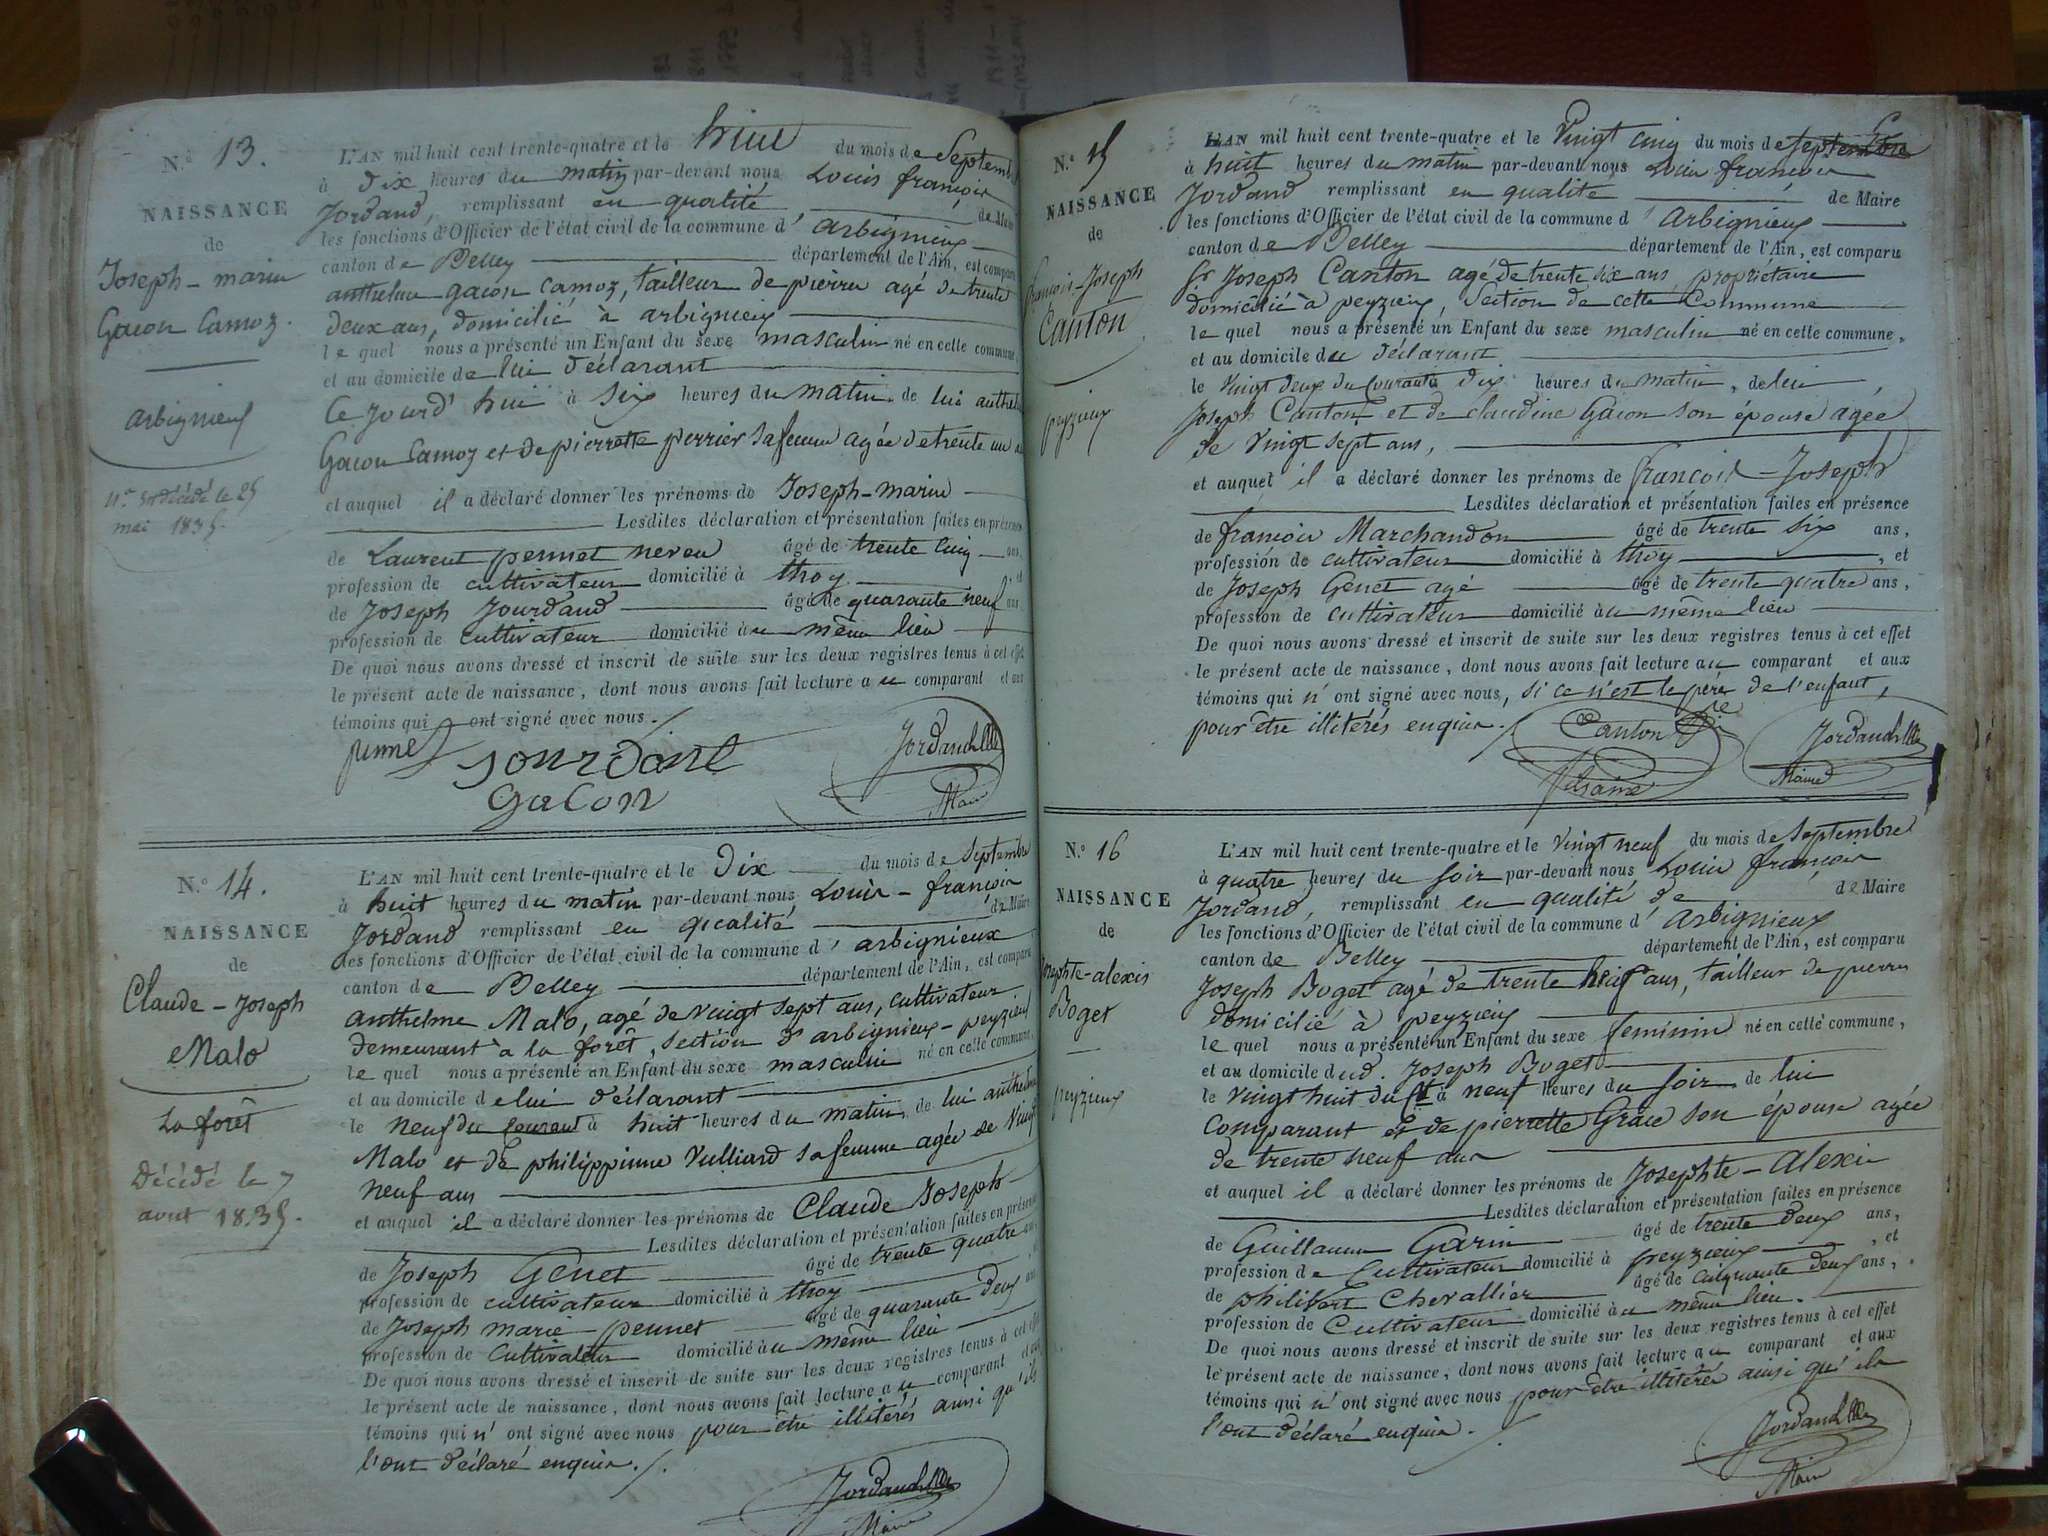 N.o 13.
NAISSANCE
de
Joseph-marie
Gacon Camoz.
Arbignieu
décédé le 25
mai 1835.
L'AN mil huit cent trente-quatre et le huit du mois de Septembre
à dix heures du matin par-devant nous Louis françois
Jordand, remplissant en qualité de Maire
les fonctions d'Officier de l'état civil de la commune d'arbignieux
canton de Belley département de l'Ain, est comparu
anthelme gacon camoz, tailleur de pierres agé de trente
deux ans, domicilié à arbignieu
le quel nous a présenté un Enfant du sexe masculin né en cette commune,
et au domicile de lui déclarant
Ce jourd'hui à six heures du matin de lui anthelme
Gacon Camoz et de pierrette perrier sa femme agée de trente un
et auquel il a déclaré donner les prénoms de Joseph-marie
Lesdites déclaration et présentation faites en présence
de Laurent pennet neveu âgé de trente cinq ans,
profession de cultivateur domicilié à thoy, et
de Joseph Jourdand âgé de quarante neuf ans
profession de cultivateur domicilié au même lieu
De quoi nous avons dressé et inscrit de suite sur les deux registres tenus à cet effet
le présent acte de naissance, dont nous avons fait lecture au comparant et aux
témoins qui ont signé avec nous.
pennet
Jourdant
Gacon
Jordand
Maire
N.o 14.
NAISSANCE
de
Claude-Joseph
Malo
La forêt
Décédé le 7
avril 1835.
L'AN mil huit cent trente-quatre et le dix du mois de Septembre
à huit heures du matin par-devant nous Louis-françois
Jordand remplissant en qualité de Maire
les fonctions d'Officier de l'état civil de la commune d'arbignieux
canton de Belley département de l'Ain, est comparu
anthelme Malo, agé de vingt sept ans, cultivateur
demeurant à la forêt, section d'arbignieux-peyzieu
le quel nous a présenté un Enfant du sexe masculin né en cette commune,
et au domicile de lui déclarant
le neuf du courant à huit heures du matin, de lui anthelme
Malo et de philippinne Vulliard sa femme agée de vingt
neuf ans
et auquel il a déclaré donner les prénoms de Claude Joseph
Lesdites déclaration et présentation faites en présence
de Joseph Genet âgé de trente quatre ans,
profession de cultivateur domicilié à thoy
de Joseph marie pennet âgé de quarante deux ans
profession de cultivateur domicilié au même lieu
De quoi nous avons dressé et inscrit de suite sur les deux registres tenus à cet effet
le présent acte de naissance, dont nous avons fait lecture au comparant et aux
témoins qui n'ont signé avec nous pour être illitérés ainsi qu'ils
l'ont déclaré enquis.
Jordand
Maire
N.o 15
NAISSANCE
de
françois-Joseph
Canton
peyzieux
L'AN mil huit cent trente-quatre et le Vingt cinq du mois de septembre
à huit heures du matin par-devant nous Louis françois
Jordand remplissant en qualité de Maire
les fonctions d'Officier de l'état civil de la commune d'arbignieux
canton de Belley département de l'Ain, est comparu
Sr Joseph Canton agé de trente six ans, proprietaire
domicilié à peyzieu, Section de cette Commune
le quel nous a présenté un Enfant du sexe masculin né en cette commune,
et au domicile du déclarant
le vingt deux du Courant à dix heures du matin, de lui
Joseph Canton et de claudine Gacon son épouse agée
de vingt sept ans,
et auquel il a déclaré donner les prénoms de françois-Joseph
Lesdites déclaration et présentation faites en présence
de françois Marchandon âgé de trente six ans,
profession de cultivateur domicilié à thoy, et
de Joseph Genet agé âgé de trente quatre ans,
profession de cultivateur domicilié au même lieu
De quoi nous avons dressé et inscrit de suite sur les deux registres tenus à cet effet
le présent acte de naissance, dont nous avons fait lecture au comparant et aux
témoins qui n'ont signé avec nous, si ce n'est le père de l'enfant,
pour être illitérés enquis.
Canton
Jordand
Maire
N.o 16
NAISSANCE
de
Josephte-alexis
Boget
peyzieux
L'AN mil huit cent trente-quatre et le vingt neuf du mois de Septembre
à quatre heures du soir par-devant nous Louis françois
Jordand, remplissant en qualité de de Maire
les fonctions d'Officier de l'état civil de la commune d'arbignieux
canton de Belley département de l'Ain, est comparu
Joseph Boget agé de trente huit ans, tailleur de pierres
domicilié à peyzieu
le quel nous a présenté un Enfant du sexe feminin né en cette commune,
et au domicile dud. Joseph Boget
le vingt huit du ct à neuf heures du soir de lui
comparant et de pierrette Grâce son épouse agée
de trente neuf ans
et auquel il a déclaré donner les prénoms de Josephte-Alexis
Lesdites déclaration et présentation faites en présence
de Guillaume Garin âgé de trente deux ans,
profession de Cultivateur domicilié à peyzieux, et
de philibert Chevallier âgé de cinquante deux ans,
profession de Cultivateur domicilié au même lieu.
De quoi nous avons dressé et inscrit de suite sur les deux registres tenus à cet effet
le présent acte de naissance, dont nous avons fait lecture au comparant et aux
témoins qui n'ont signé avec nous pour être illitérés ainsi qu'ils
l'ont déclaré enquis.
Jordand
Maire